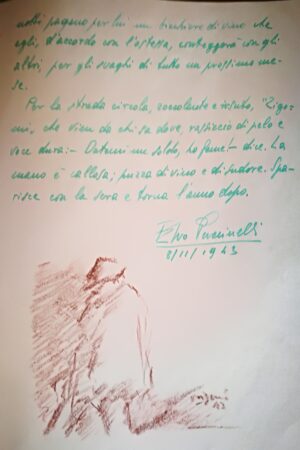 molti pagano per lui un bicchiere di vino che
egli, d'accordo con l'ostessa, conteggerà con gli
altri, per gli svaghi di tutto un prossimo me-
se.
Per la strada circola, zoccolante e risputo, "Zigo-
mi", che vien da chi sa dove, rossiccio di pelo e
voce dura: - Datemi un soldo, ho fame! - dice. La
mano è callosa; puzza di vino e di sudore. Spa-
risce con la sera e torna l'anno dopo.
Elvo Puccinelli
2/11/1943
43